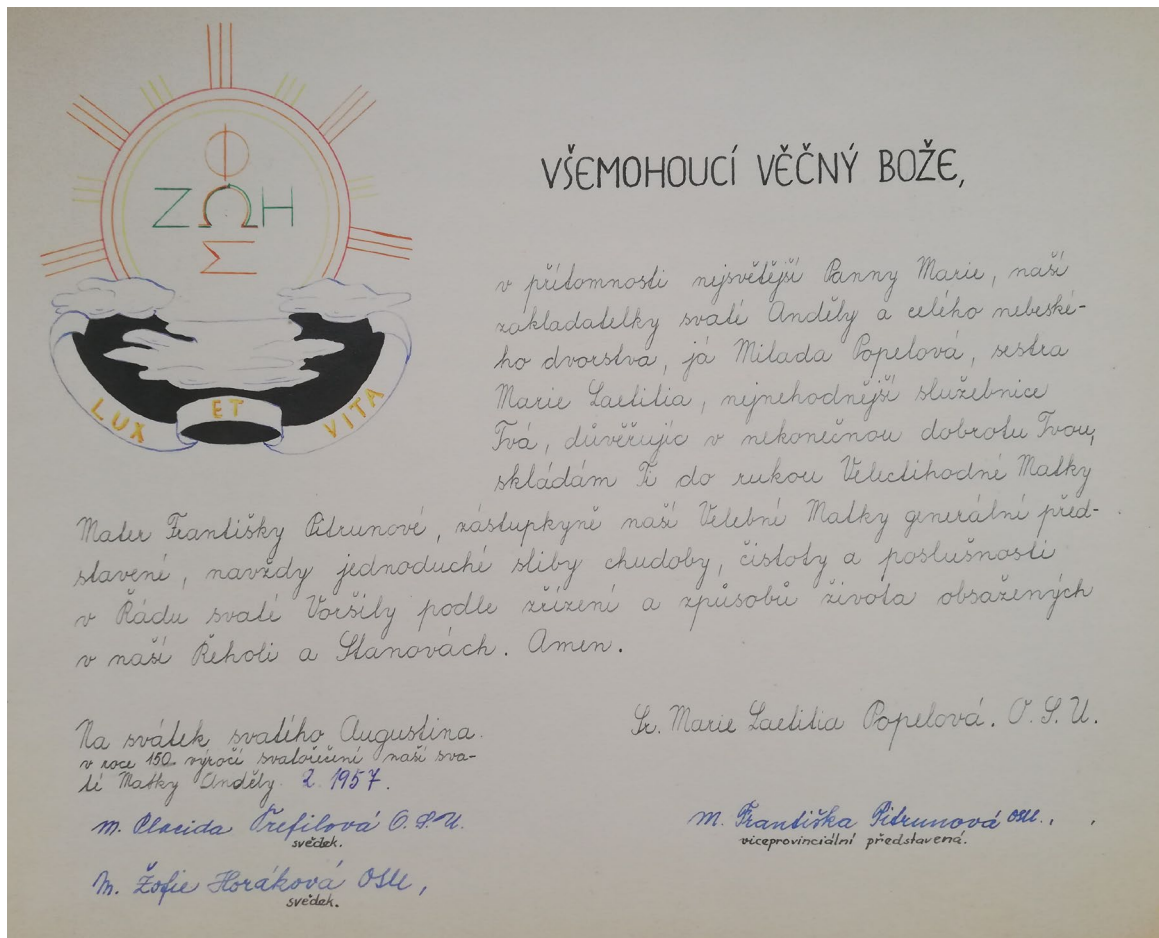 Φ
ΖΩΗ
Σ
LUX ET VITA
VŠEMOHOUCÍ VĚČNÝ BOŽE,
v přítomnosti nejsvětější Panny Marie, naší
zakladatelky svaté Anděly a celého nebeské-
ho dvorstva, já Milada Popelová, sestra
Marie Laetitia, nejnehodnější služebnice
Tvá, důvěřujíc v nekonečnou dobrotu Tvou,
skládám Ti do rukou Velectihodné Matky
Mater Františky Pitrunové, zástupkyně naší Velebné Matky generální před-
stavené, navždy jednoduché sliby chudoby, čistoty a poslušnosti
v Řádu svaté Voršily podle zřízení a způsobů života obsažených
v naší Řeholi a Stanovách. Amen.
Na svátek svatého Augustina
v roce 150. výročí svatořečení naší sva-
té Matky Anděly. L. 1957.
Sr. Marie Laetitia Popelová. O. S. U.
M. Placida Třefilová O.S.U.
svědek.
M. Františka Pitrunová OSU.
viceprovinciální představená.
M. Žofie Horáková OSU,
svědek.